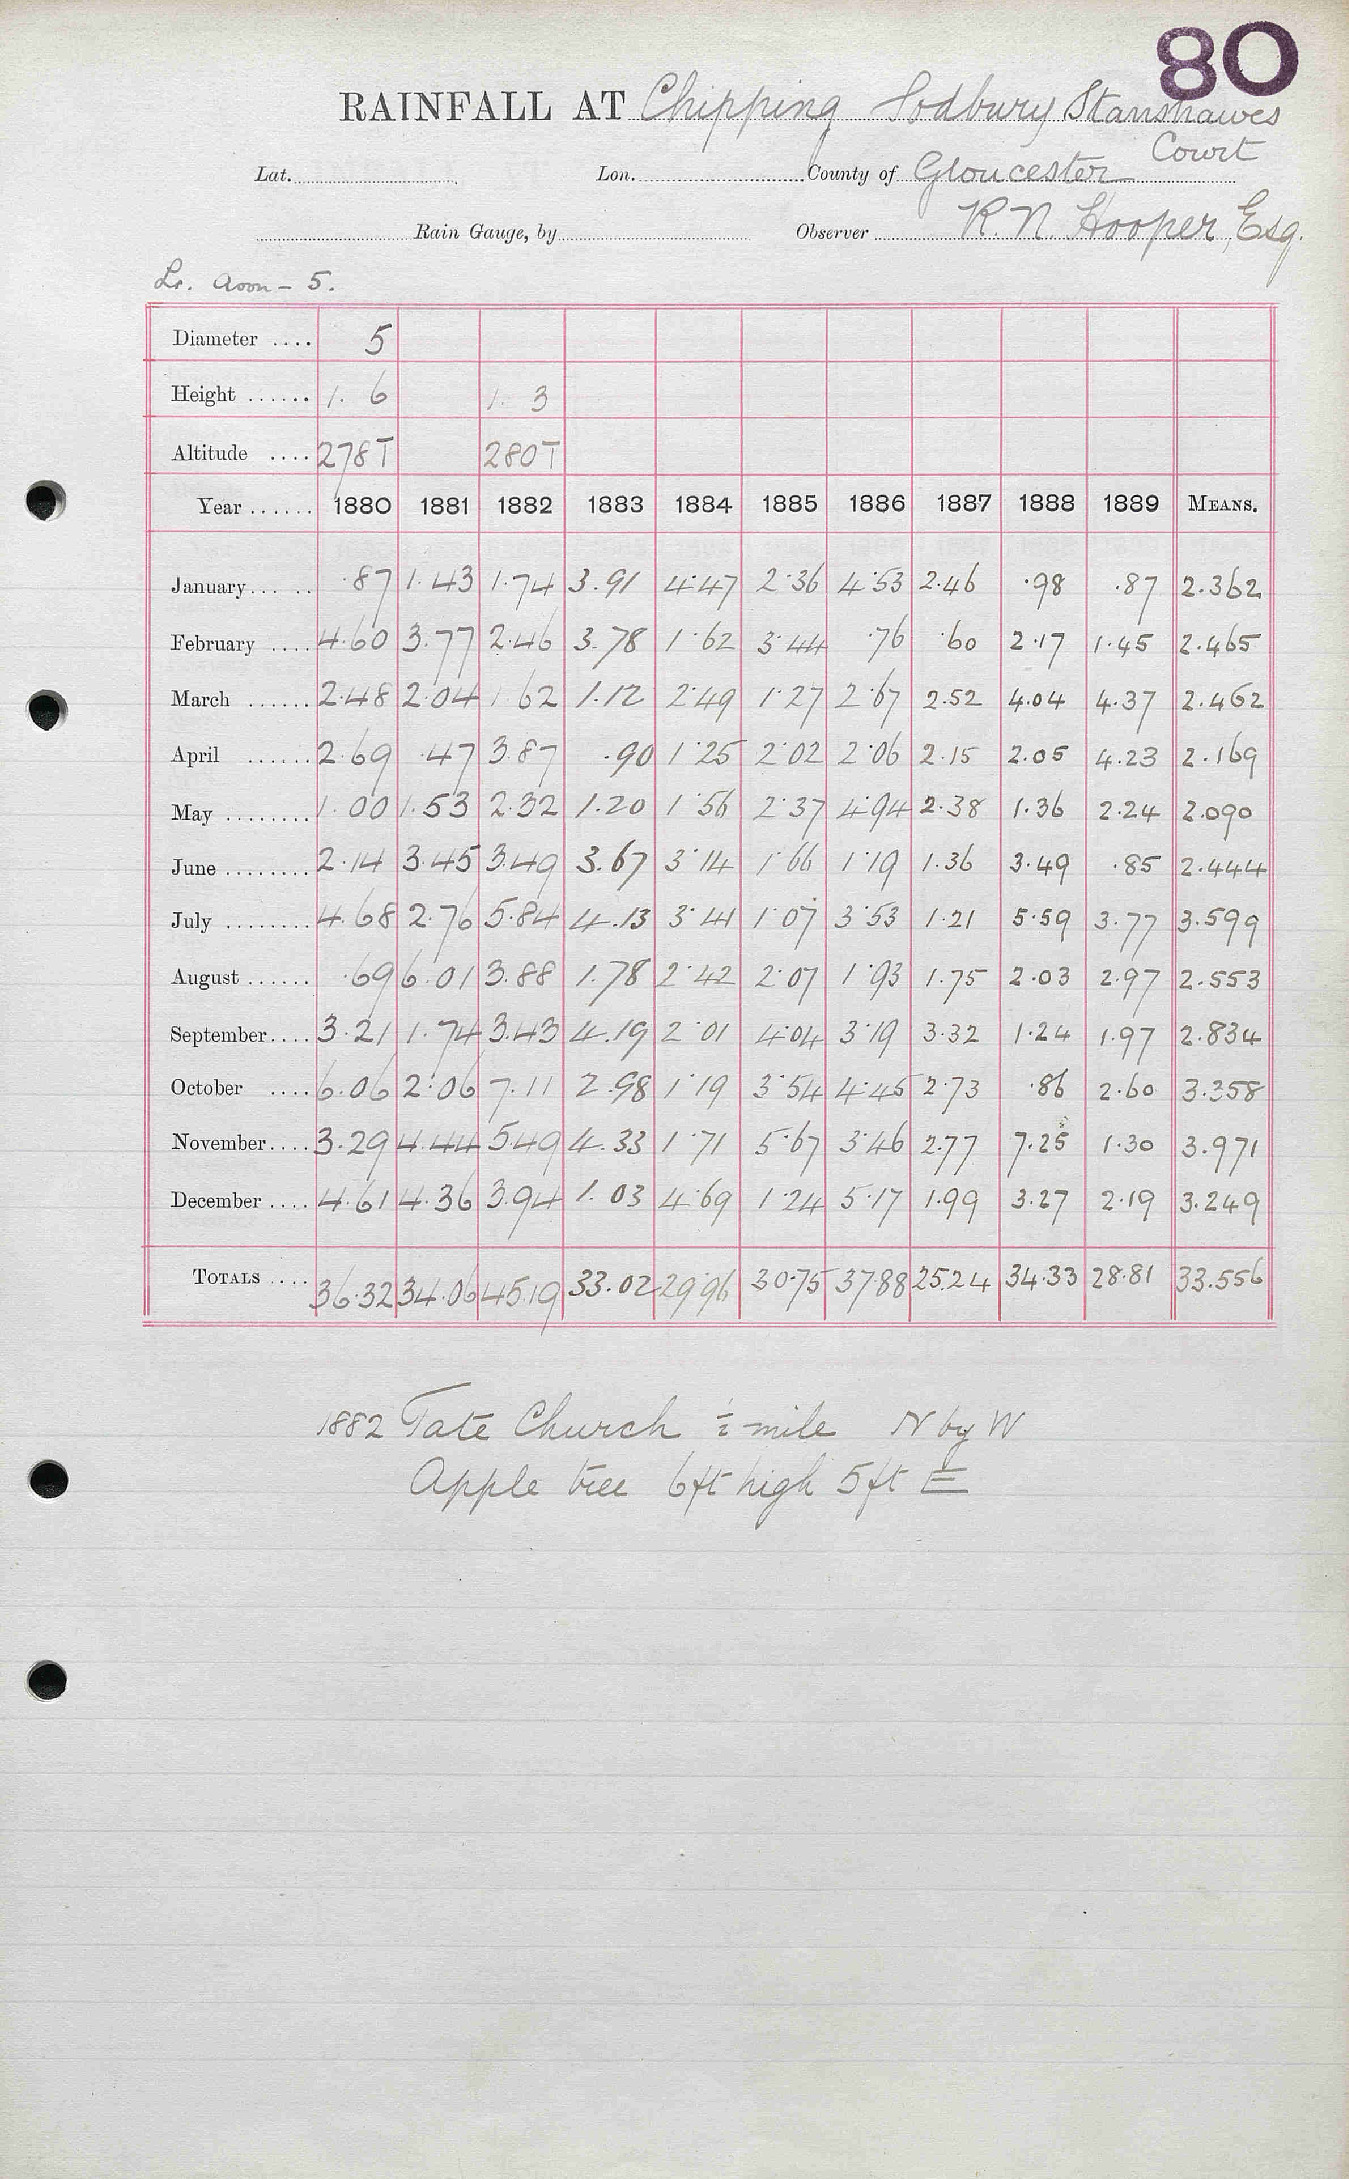 80
RAINFALL AT Chipping Sodbury Stanshawes
Court
Lat. Lon. County of Gloucester
Rain Gauge, by Observer R. N. Hooper, Esq.
Lr. Avon - 5.
Diameter .... 5
Height ...... 1. 6 1. 3
Altitude .... 278T 280T
Year ...... 1880 1881 1882 1883 1884 1885 1886 1887 1888 1889 MEANS.
January ..... .87 1.43 1.74 3.91 4.47 2.36 4.53 2.46 .98 .87 2.362
February .... 4.60 3.77 2.46 3.78 1.62 3.44 .76 .60 2.17 1.45 2.465
March ...... 2.48 2.04 1.62 1.12 2.49 1.27 2.67 2.52 4.04 4.37 2.462
April ...... 2.69 .47 3.87 .90 1.25 2.02 2.06 2.15 2.05 4.23 2.169
May ........ 1.00 1.53 2.32 1.20 1.56 2.37 4.94 2.38 1.36 2.24 2.090
June ........ 2.14 3.45 3.49 3.67 3.14 1.66 1.19 1.36 3.49 .85 2.444
July ........ 4.68 2.76 5.84 4.13 3.41 1.07 3.53 1.21 5.59 3.77 3.599
August ...... .69 6.01 3.88 1.78 2.42 2.07 1.93 1.75 2.03 2.97 2.553
September .... 3.21 1.74 3.43 4.19 2.01 4.04 3.19 3.32 1.24 1.97 2.834
October .... 6.06 2.06 7.11 2.98 1.19 3.54 4.45 2.73 .86 2.60 3.358
November .... 3.29 4.44 5.49 4.33 1.71 5.67 3.46 2.77 7.25 1.30 3.971
December .... 4.61 4.36 3.94 1.03 4.69 1.24 5.17 1.99 3.27 2.19 3.249
TOTALS .... 36.32 34.06 45.19 33.02 29.96 30.75 37.88 25.24 34.33 28.81 33.556
1882 Tate Church ½ mile N by W
Apple tree 6ft high 5ft E